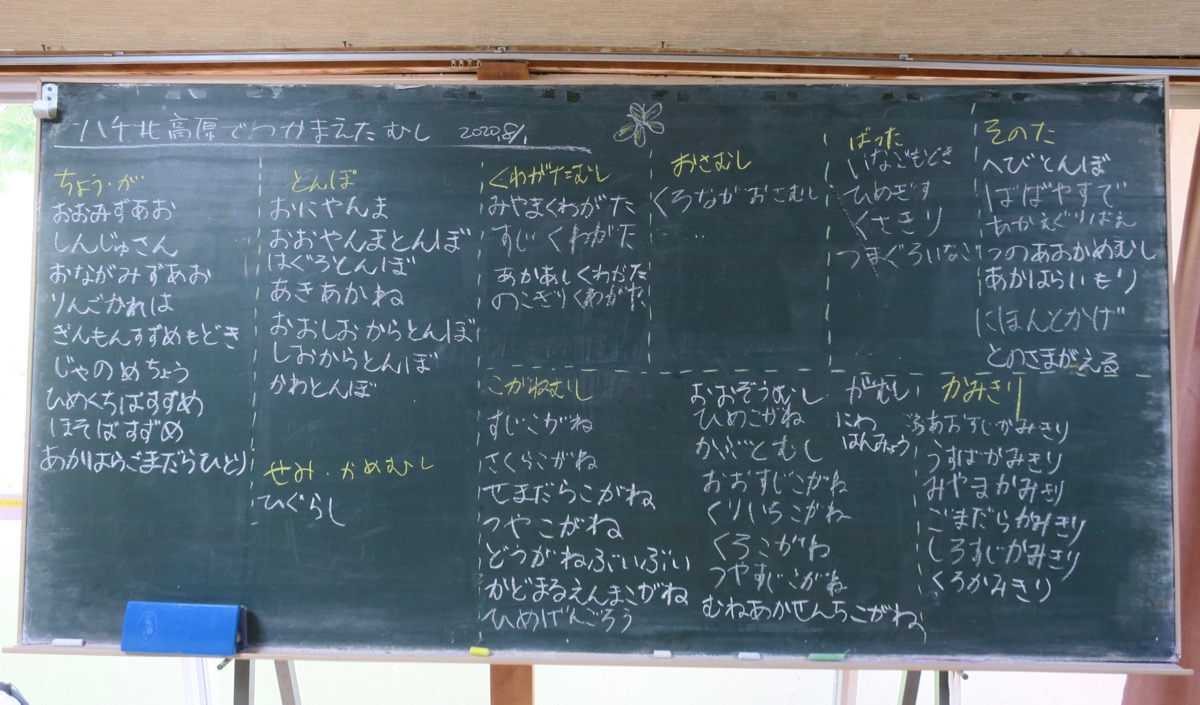 ハチ北高原でつかまえたむし 2020.8/1
ちょう・が
おおみずあお
しんじゅさん
おながみずあお
りんごかれは
ぎんもんすずめもどき
じゃのめちょう
ひめくちばすずめ
ほそばすずめ
あかはらごまだらひとり
とんぼ
おにやんま
おおやんまとんぼ
はぐろとんぼ
あきあかね
おおしおからとんぼ
しおからとんぼ
かわとんぼ
せみ・かめむし
ひぐらし
くわがたむし
みやまくわがた
すじくわがた
あかあしくわがた
のこぎりくわがた
おさむし
くろながおさむし
ばった
いなごもどき
ひめぎす
くさきり
つまぐろいなご
そのた
へびとんぼ
ばばやすで
あかえぐりばえ
つのあおかめむし
あかはらいもり
にほんとかげ
とのさまがえる
こがねむし
すじこがね
さくらこがね
せまだらこがね
つやこがね
どうがねぶいぶい
かどまるえんまこがね
ひめげんごろう
おおぞうむし
ひめこがね
かぶとむし
おおすじこがね
くりいろこがね
くろこがね
つやすじこがね
むねあかせんちこがね
がむし
にわ
はんみょう
かみきり
あおすじかみきり
うすばかみきり
みやまかみきり
ごまだらかみきり
しろすじかみきり
くろかみきり